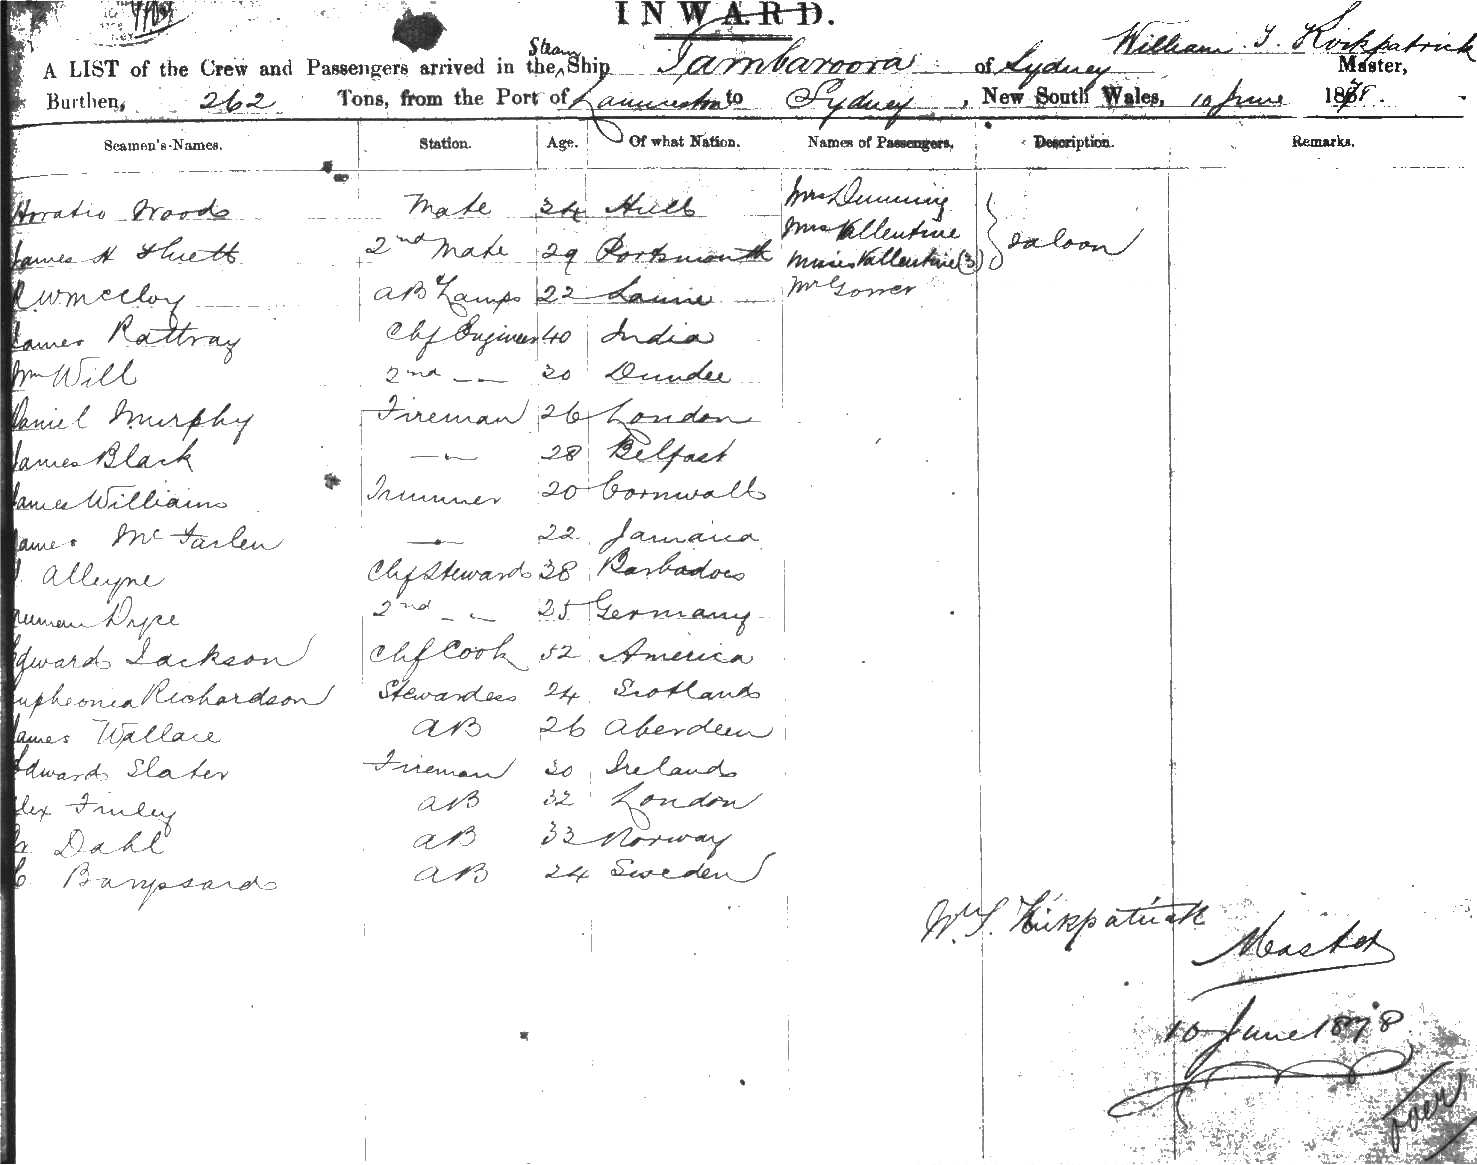 INWARD.
William S. Kirkpatrick
A LIST of the Crew and Passengers arrived in the Steam Ship Tambaroora of Sydney Master,
Burthen, 262 Tons, from the Port of Launceston to Sydney, New South Wales, 10 June 1878.
Seamen's Names. Station. Age. Of what Nation. Names of Passengers. Description. Remarks.
Horatio Woods Mate 34 Hull Mrs Dunning
James H 2nd Mate 29 Portsmouth Mrs Vallentine Saloon
Misses Vallentine (3)
R W McCloy AB & Lamps 22 Mr Gower
James Rattray Chf Engineer 40 India
Wm Will 2nd -"- 30 Dundee
Daniel Murphy Fireman 26 London
James Black -"- 28 Belfast
James Williams Trimmer 20 Cornwall
James McFarlen -"- 22 Jamaica
Alleyne Chf Steward 38 Barbadoes
Dyce 2nd -"- 25 Germany
Edward Jackson Chf Cook 52 America
Eupheonia Richardson Stewardess 24 Scotland
James Wallace AB 26 Aberdeen
Edward Slater Fireman 30 Ireland
Alex Finley AB 32 London
Dahl AB 33 Norway
C. AB 24 Sweden
Wm S. Kirkpatrick
Master
10 June 1878
over